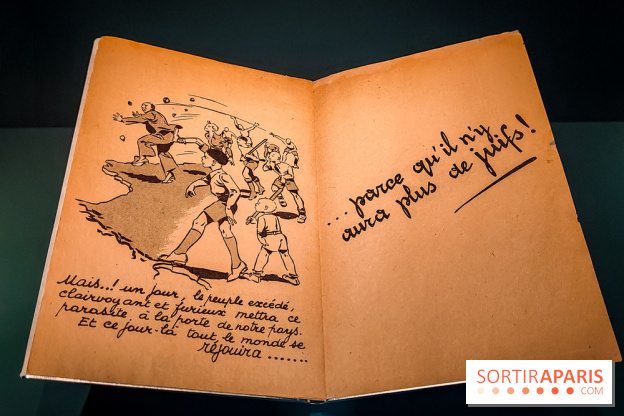 Mais..! un jour, le peuple excédé,
clairvoyant et furieux mettra ce
parasite à la porte de notre pays.
Et ce jour-là tout le monde se
réjouira .......
... parce qu'il n'y
aura plus de juifs!
SORTIRAPARIS
.COM